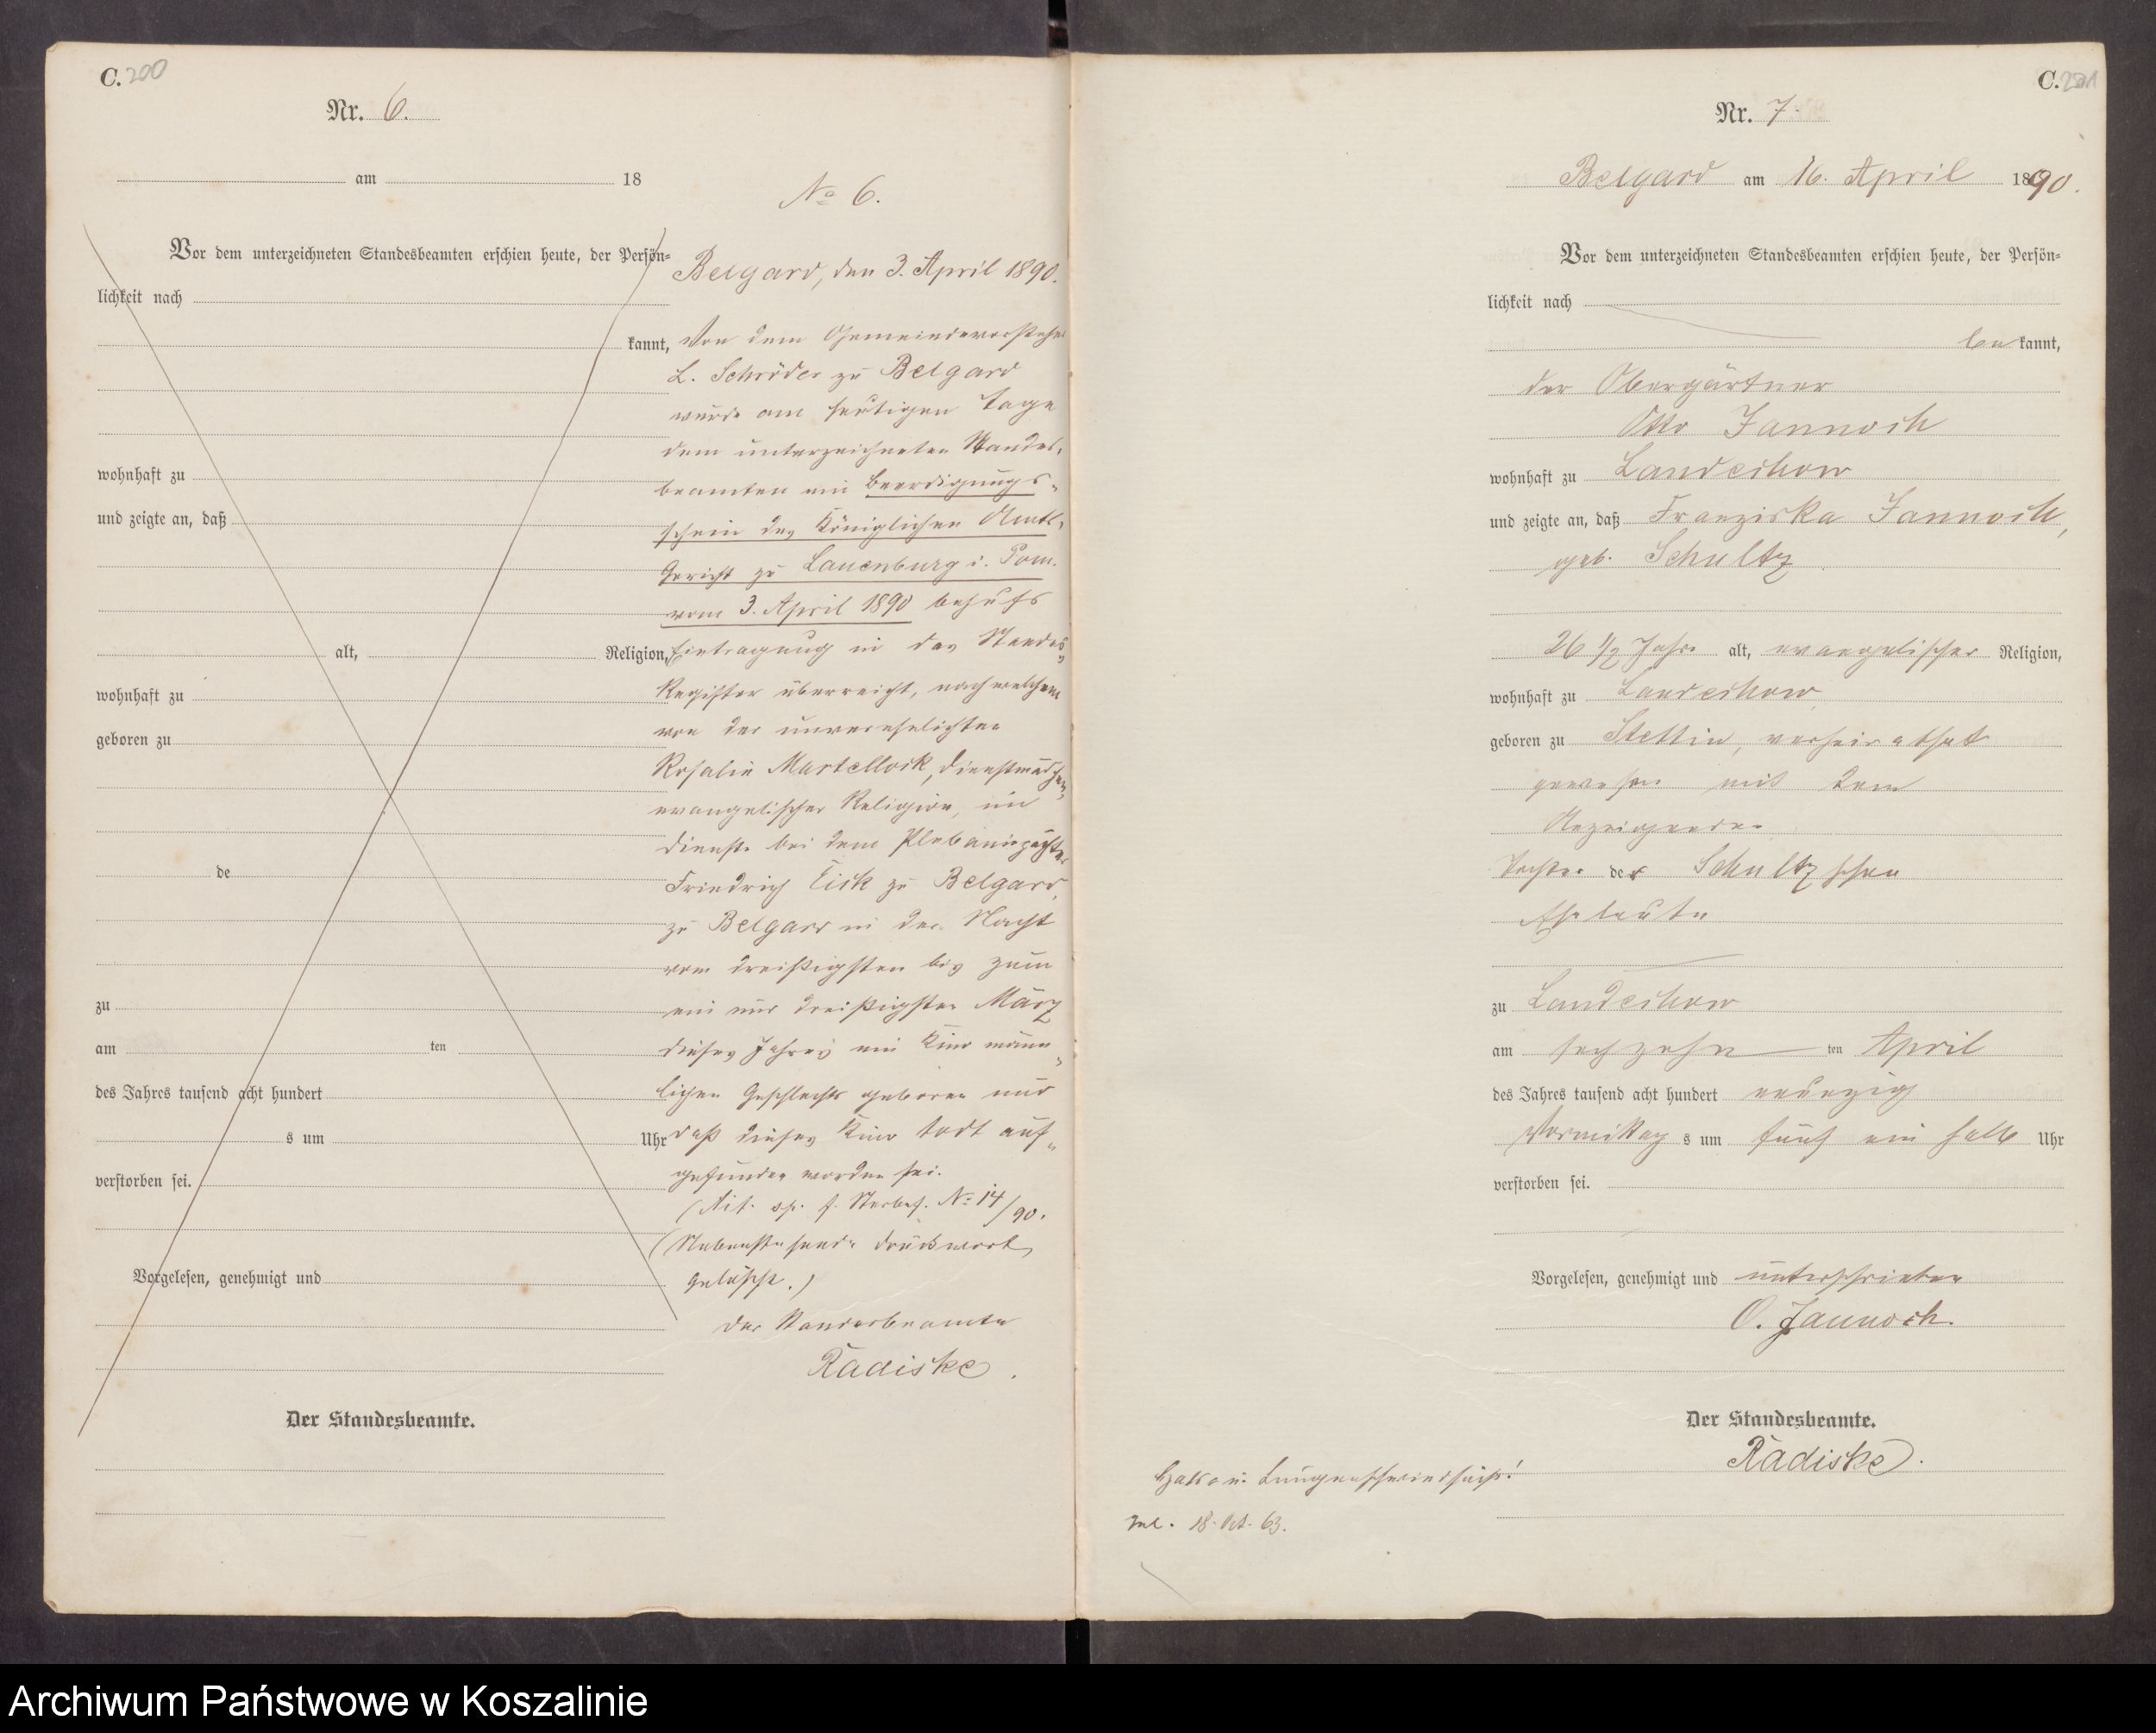 C. 200
Nr. 6.
am 18
Vor dem unterzeichneten Standesbeamten erschien heute, der Persön-
lichkeit nach
kannt,
wohnhaft zu
und zeigte an, daß
alt, Religion,
wohnhaft zu
geboren zu
de
zu
am ten
des Jahres tausend acht hundert
s um Uhr
verstorben sei.
Vorgelesen, genehmigt und
Der Standesbeamte.
No 6.
Belgard, den 3. April 1890.
Von dem Gemeindevorsteher
L. Schröder zu Belgard
wurde am heutigen Tage
dem unterzeichneten Standes-
beamten ein Beerdigungs-
schein des Königlichen Amts-
Gericht zu Lauenburg i. Pom.
vom 3. April 1890 behufs
Eintragung in das Standes-
Register überreicht, nach welchem
von der unverehelichten
Rosalie Martellock, Dienstmädchen,
evangelischer Religion, im
Dienste bei dem
Friedrich Eick zu Belgard,
zu Belgard in der Nacht
vom dreißigsten bis zum
ein und dreißigsten März
dieses Jahres ein Kind männ-
lichen Geschlechts geboren und
daß dieses Kind todt auf-
gefunden worden sei.
No 14/90.
(Nebenstehende Druckworte
gelöscht.)
Der Standesbeamte
Radiske.
C. 201
Nr. 7.
Belgard am 16. April 1890.
Vor dem unterzeichneten Standesbeamten erschien heute, der Persön-
lichkeit nach
bekannt,
der Obergärtner
Otto Jannoch
wohnhaft zu Landechow
und zeigte an, daß Franziska Jannoch,
geb. Schultz
26 1/2 Jahre alt, evangelischer Religion,
wohnhaft zu Landechow,
geboren zu Stettin, verheirathet
gewesen mit dem
Anzeigenden
Tochter der Schultzschen
Eheleute
zu Landechow
am sechzehn ten April
des Jahres tausend acht hundert neunzig
Vormittag s um fünf ein halb Uhr
verstorben sei.
Vorgelesen, genehmigt und unterschrieben
O. Jannoch.
Der Standesbeamte.
Radiske.
Hals u. Lungenschwindsucht!
18. Oct. 63.
Archiwum Państwowe w Koszalinie